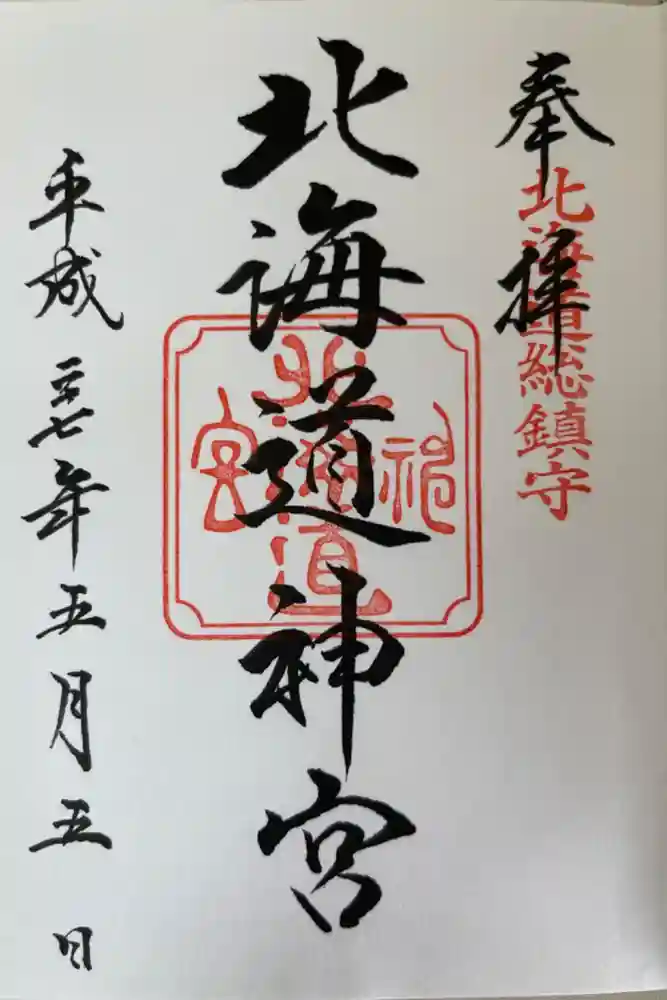 奉拝
北海道総鎮守
北海道神宮
北海道神宮
平成二十七年五月五日